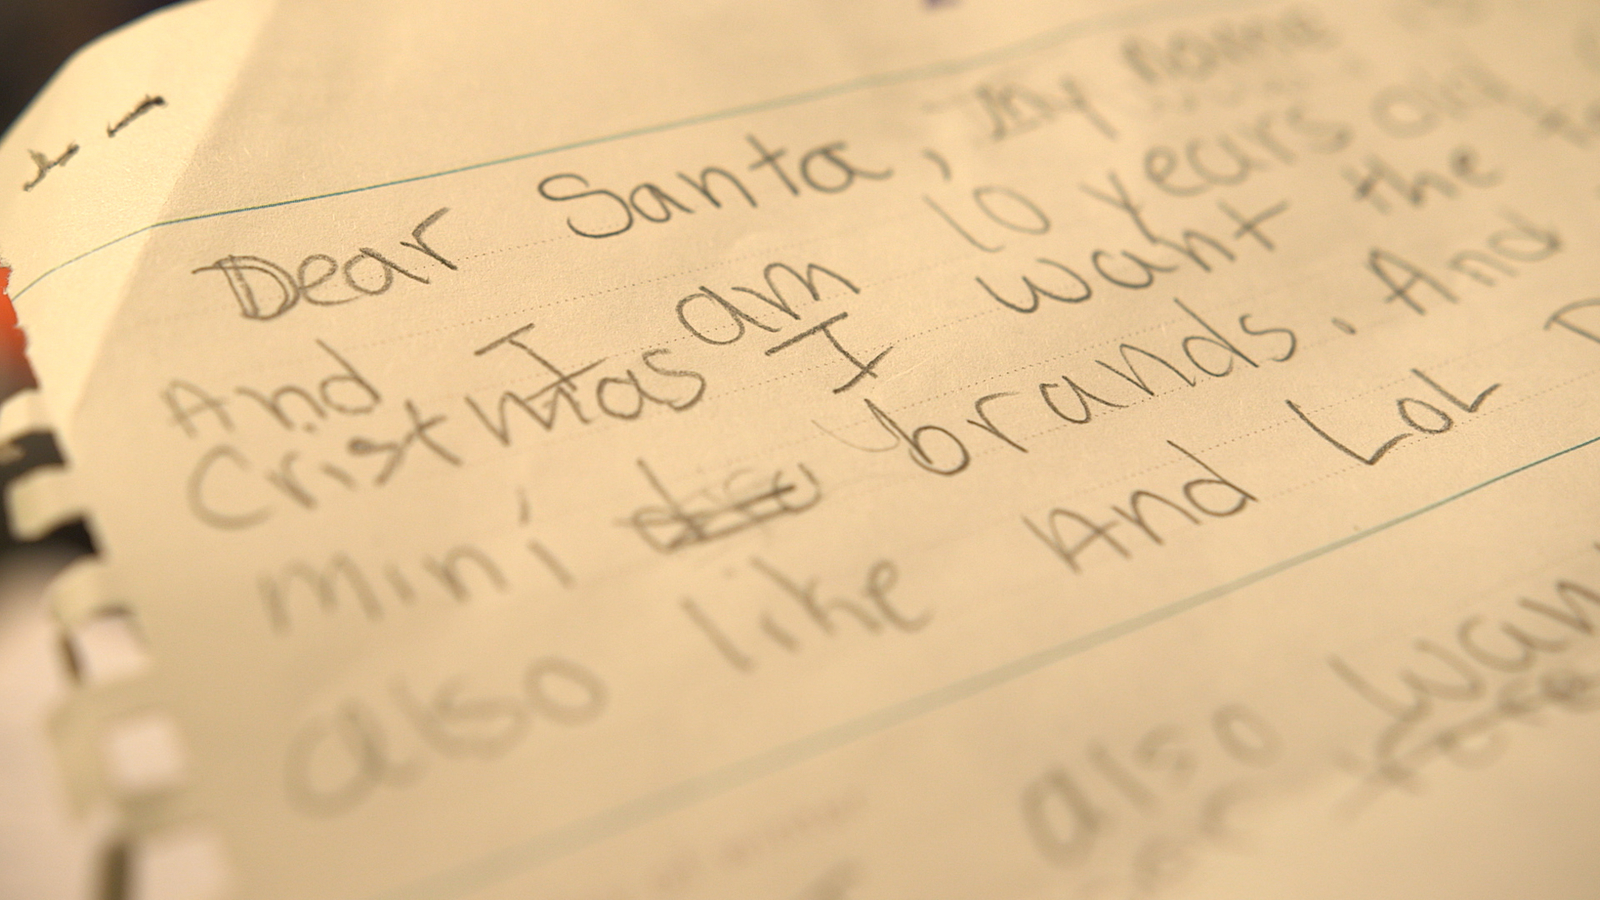 Dear Santa, My name
And I am 10 years old
Cristmas I want the
mini brands. And
also like And LOL
also wan